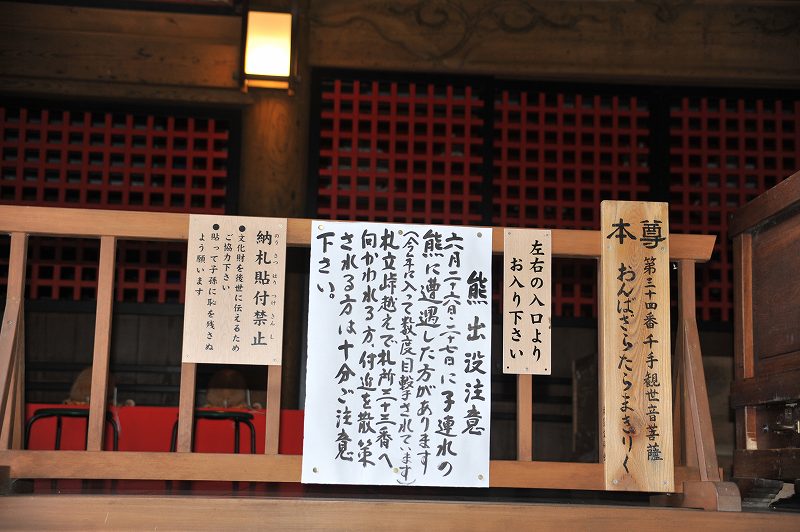 本尊
第三十四番 千手観世音菩薩
おんばさらたらまきりく
左右の入口より
お入り下さい
熊出没注意
六月二十六日・二十七日に子連れの
熊に遭遇した方があります
(今年に入って数度目撃されています)
札立峠越えで札所三十三番へ
向かわれる方、付近を散策
される方は十分ご注意
下さい。
のうさつはりつけきんし
納札貼付禁止
●文化財を後世に伝えるため
ご協力下さい
●貼って子孫に恥を残さぬ
よう願います